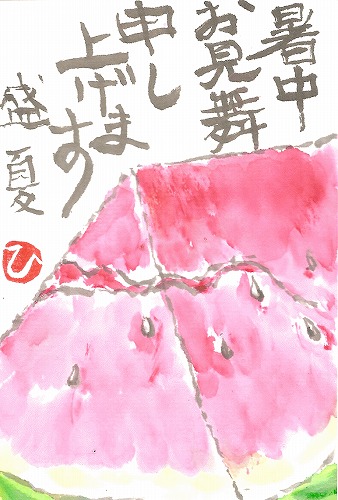 暑中
お見舞
申し
上げます
盛夏
ひ